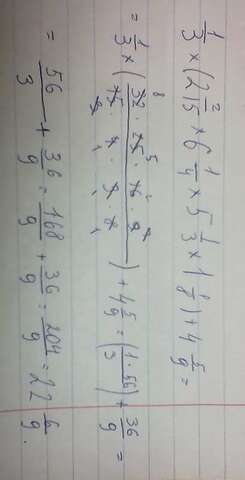 1/3 × (2 2/15 × 6 1/4 × 5 1/3 × 1 1/8) + 4 5/9 =
= 1/3 × (32 · 25 · 16 · 9 / 15 · 4 · 3 · 8) + 4 5/9 = (1·56/3) + 36/9 =
= 56/3 + 36/9 = 168/9 + 36/9 = 204/9 = 22 6/9.